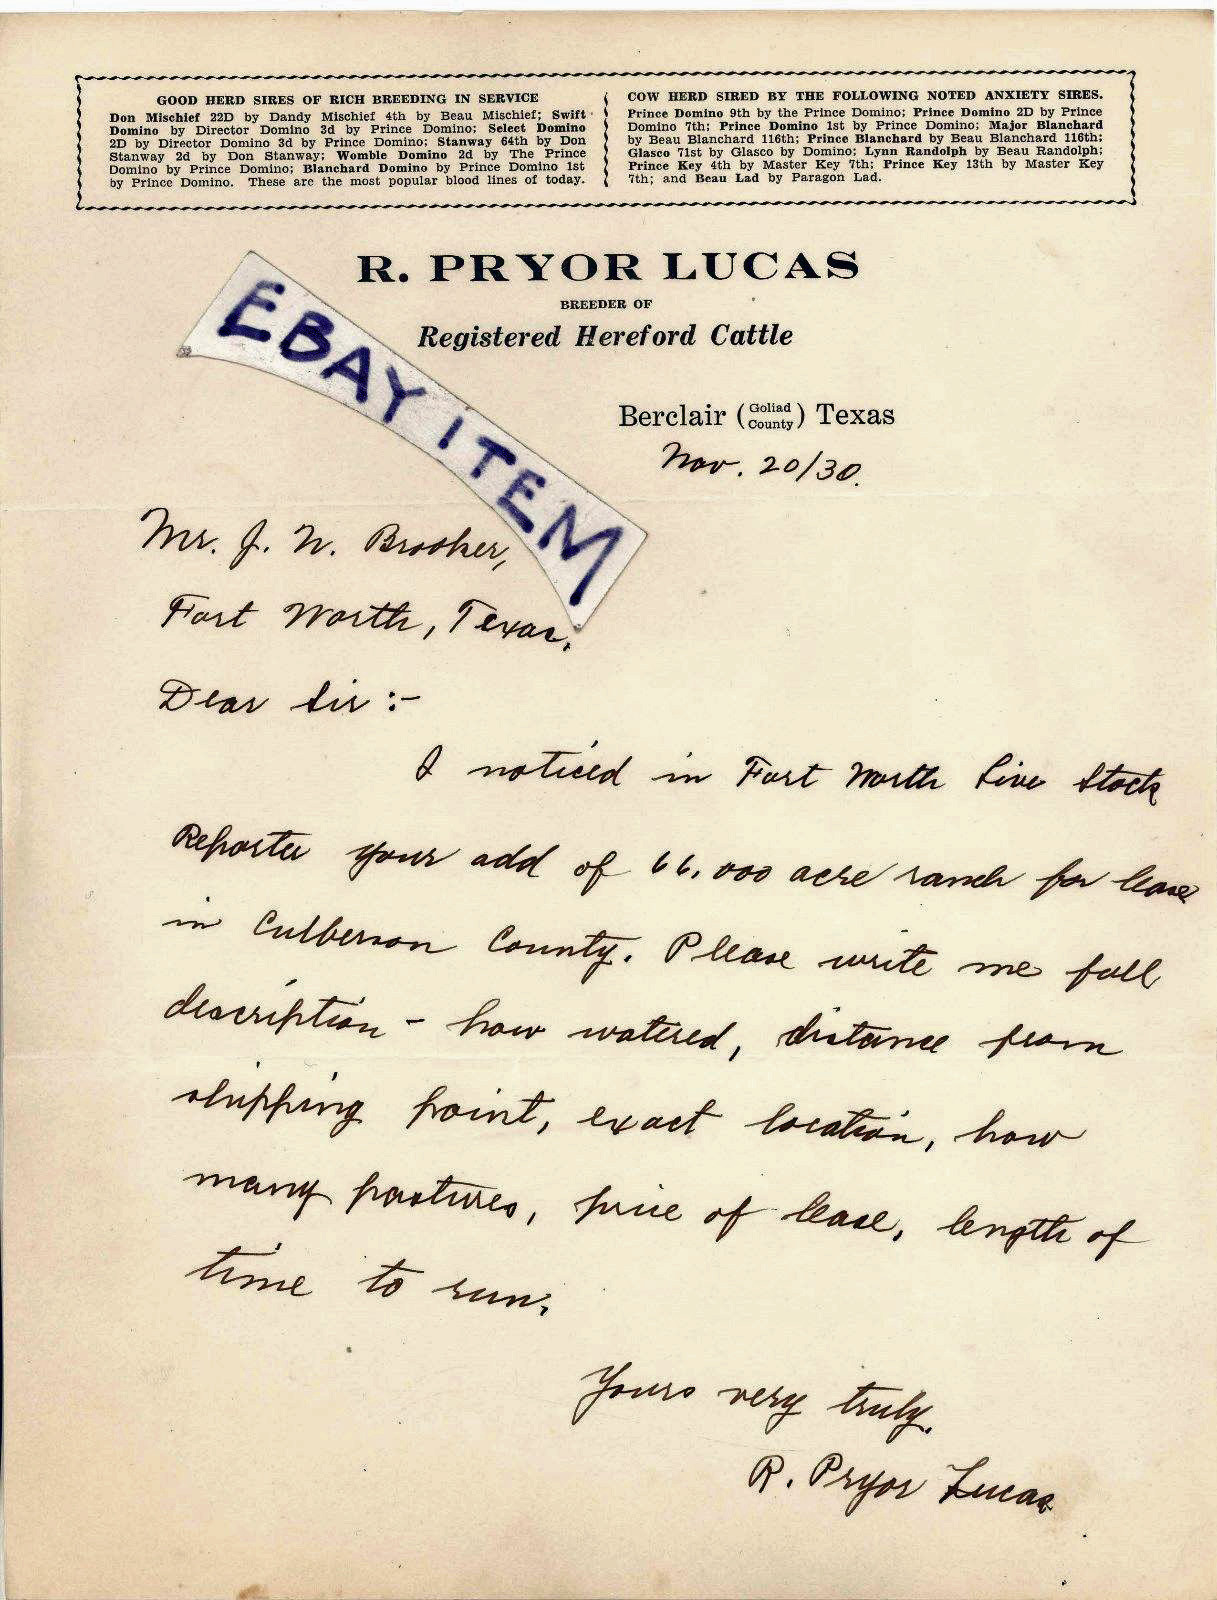 GOOD HERD SIRES OF RICH BREEDING IN SERVICE
Don Mischief 22D by Dandy Mischief 4th by Beau Mischief; Swift
Domino by Director Domino 3d by Prince Domino; Select Domino
2D by Director Domino 3d by Prince Domino; Stanway 64th by Don
Stanway 2d by Don Stanway; Womble Domino 2d by The Prince
Domino by Prince Domino; Blanchard Domino by Prince Domino 1st
by Prince Domino. These are the most popular blood lines of today.
COW HERD SIRED BY THE FOLLOWING NOTED ANXIETY SIRES.
Prince Domino 9th by the Prince Domino; Prince Domino 2D by Prince
Domino 7th; Prince Domino 1st by Prince Domino; Major Blanchard
by Beau Blanchard 116th; Prince Blanchard by Beau Blanchard 116th;
Glasco 71st by Glasco by Domino; Lynn Randolph by Beau Randolph;
Prince Key 4th by Master Key 7th; Prince Key 13th by Master Key
7th; and Beau Lad by Paragon Lad.
R. PRYOR LUCAS
BREEDER OF
Registered Hereford Cattle
EBAY ITEM
Berclair (Goliad County) Texas
Nov. 20/30.
Mr. J. N. Brooker,
Fort Worth, Texas.
Dear Sir :-
I noticed in Fort Worth Live Stock
Reporter your add of 66.000 acre ranch for lease
in Culberson County. Please write me full
description - how watered, distance from
shipping point, exact location, how
many pastures, price of lease, length of
time to run.
Yours very truly.
R. Pryor Lucas